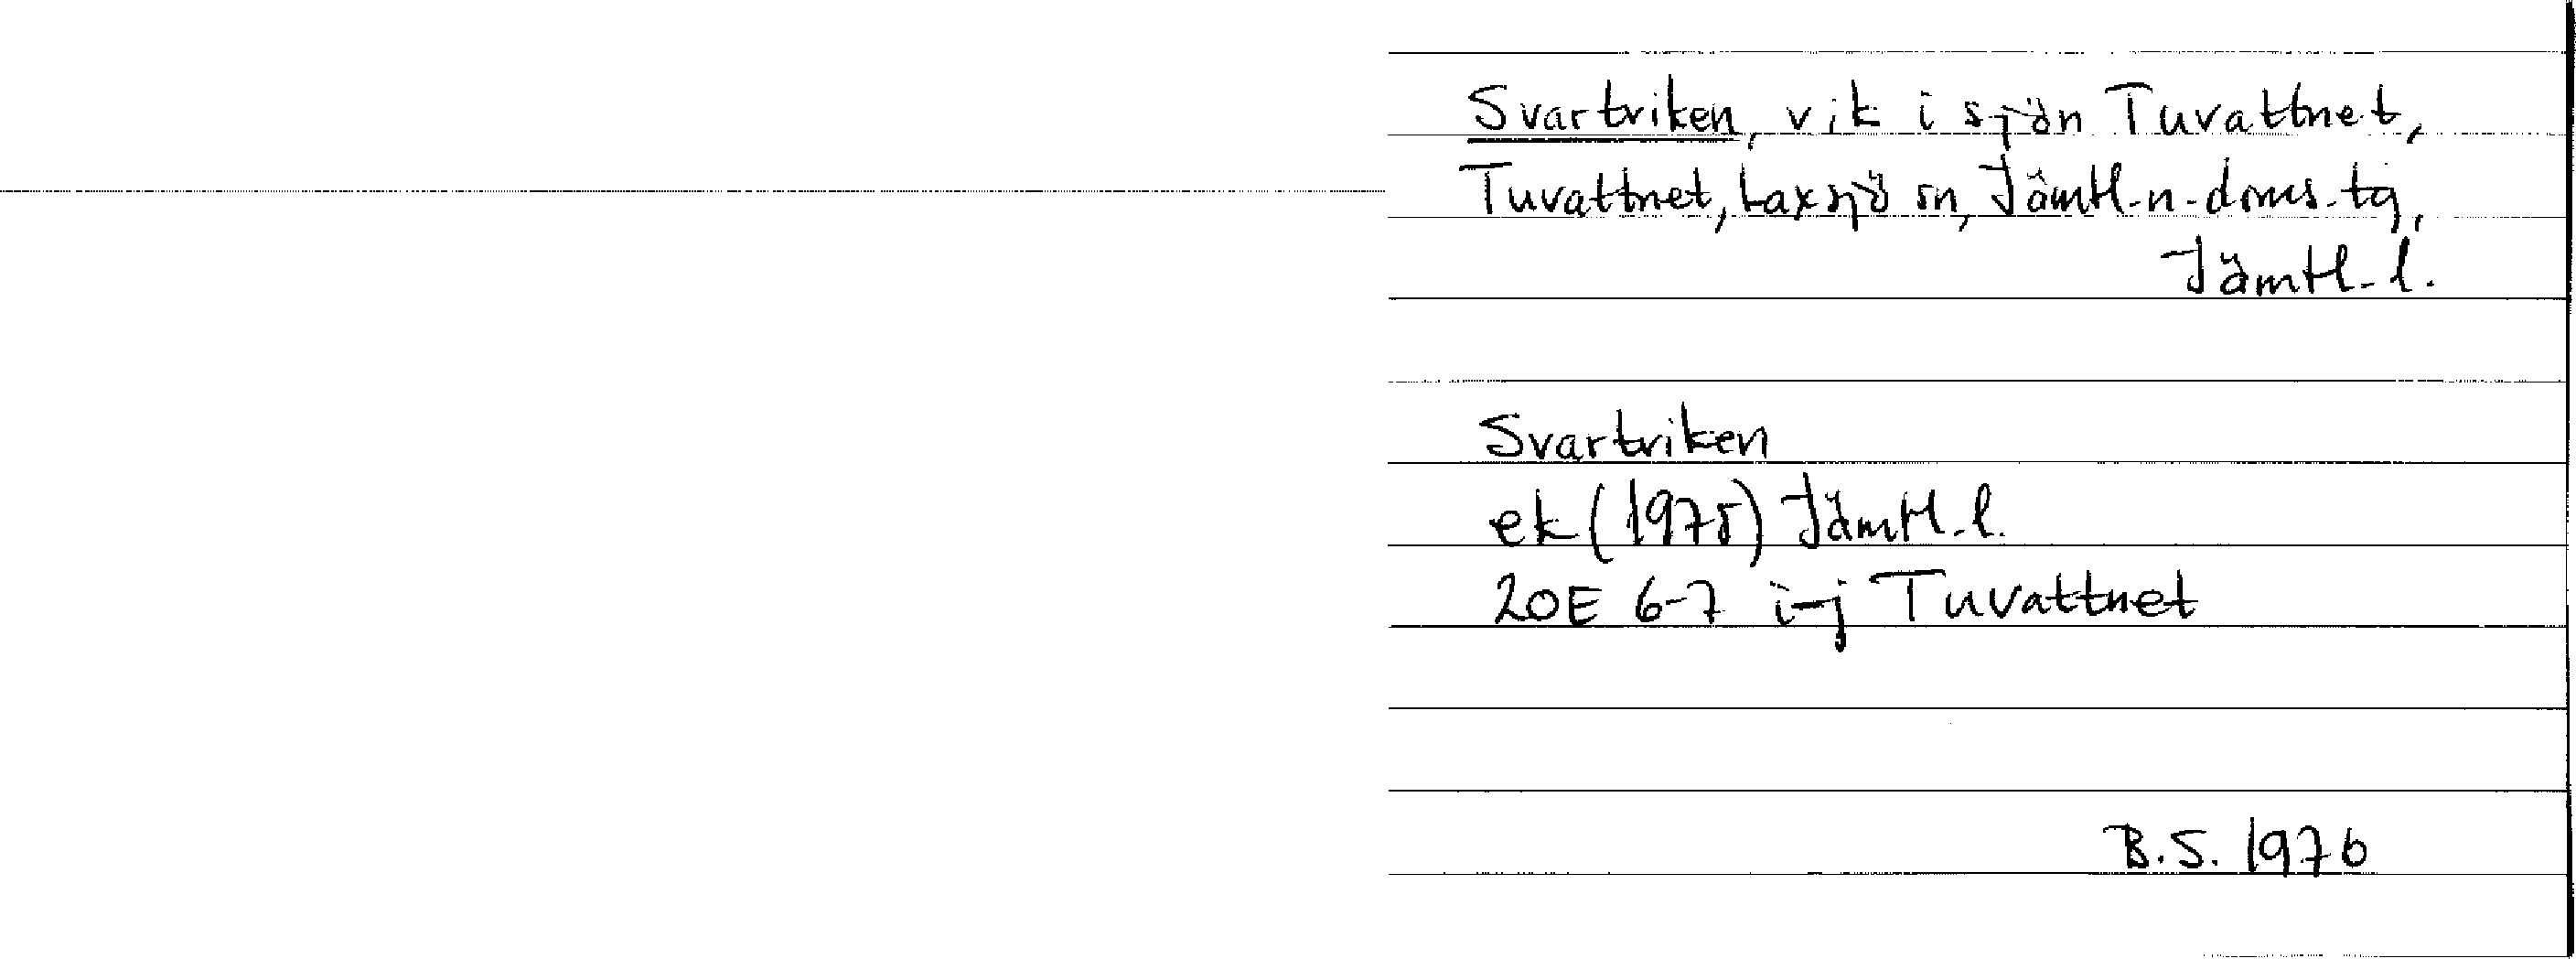 Svartviken, vik i sjön Tuvattnet,
Tuvattnet, Laxsjö sn, Jämtl. n. doms. tg,
Jämtl. l.
Svartviken
ek (1975) Jämtl. l.
20E 6-7 i-j Tuvattnet
B.S. 1976